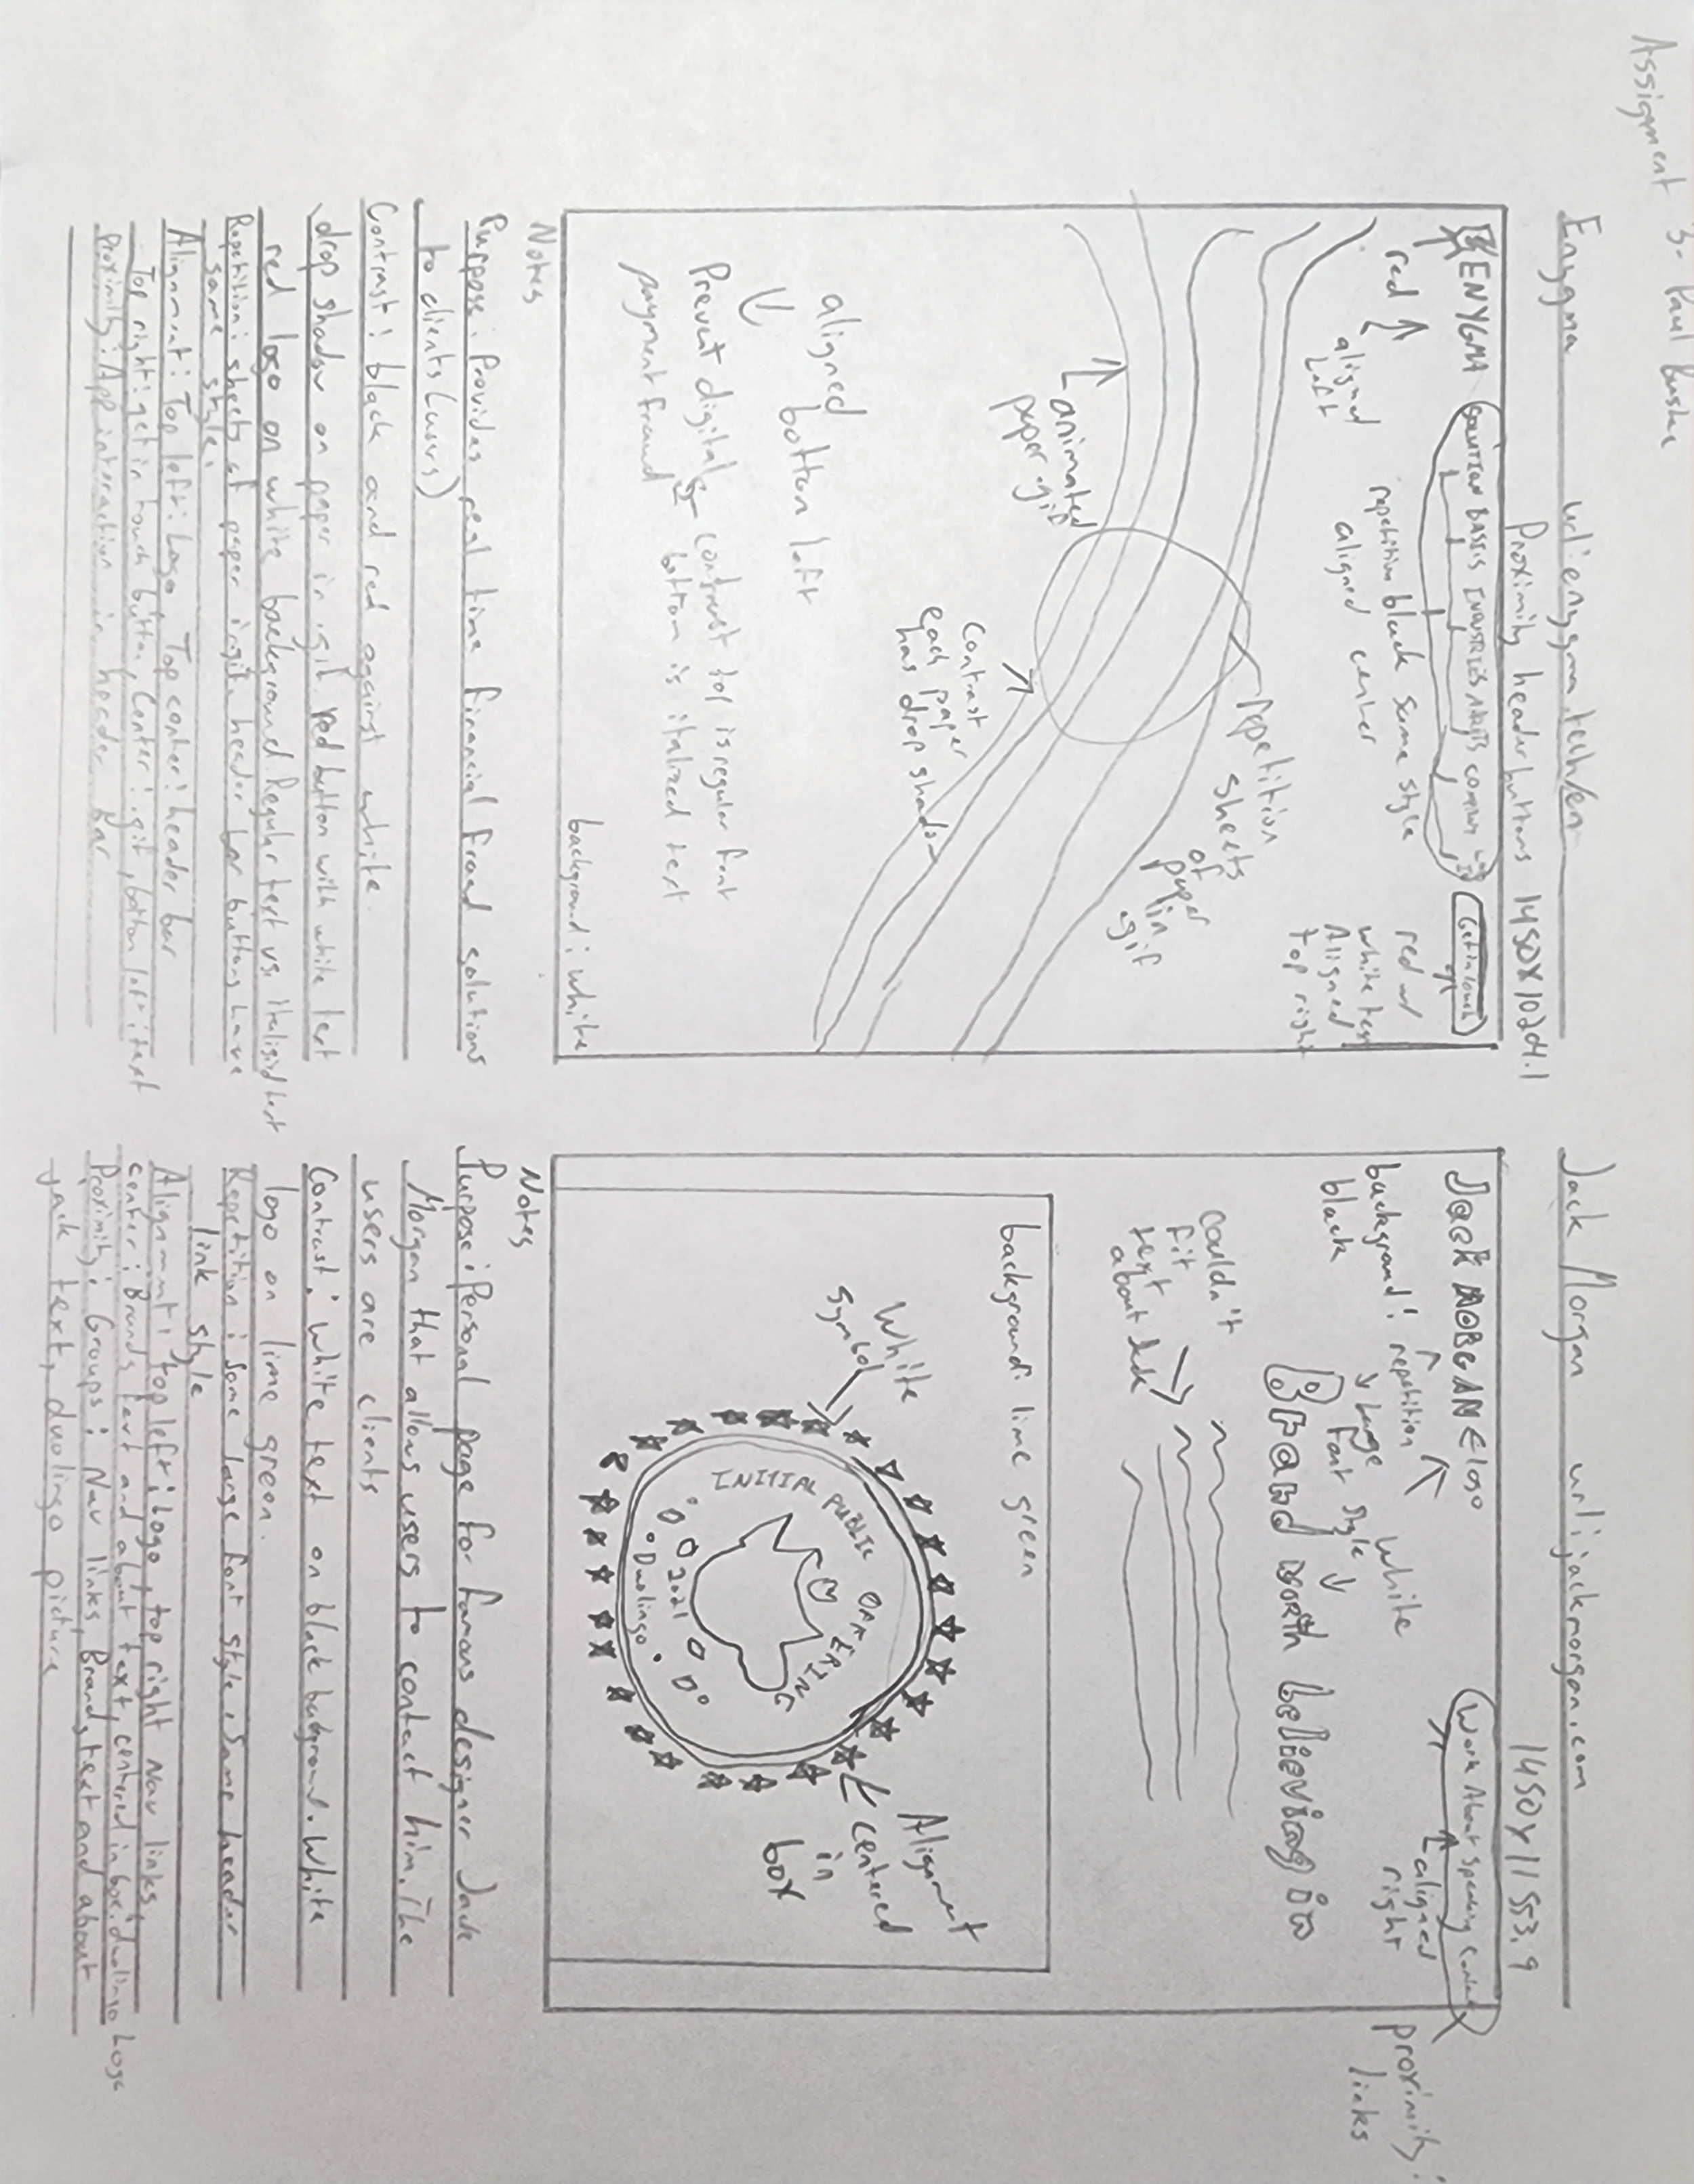 Assignment 3- Paul
Enygma url: enygma.tech/en
Proximity header buttons 1450X10204.1
ENYGMA SOLUTION BASIS INDUSTRIES COMPANY Get in touch
red
aligned
Left
repetition black same style
aligned center
red w/
white text
Aligned
top right
repetition
sheets
of
paper
in
.gif
animated
paper .gif
Contrast
each paper
has drop shadow
aligned
bottom left
Prevent digital
payment fraud
contrast top is regular font
bottom is italized text
background: white
Notes
Purpose: Provides real time financial fraud solutions
to clients (users)
Contrast: black and red against white.
drop shadow on paper in .gif. red button with white text
red logo on white background. Regular text vs. italisized text
Repetition: sheets of paper in .gif. header bar buttons have
same style.
Alignment: Top left: Logo, Top center: header bar
Top right: get in touch button, Center: .gif, bottom left: text
Proximity: App interaction in header bar
Jack Morgan url: jackmorgan.com
1450X11553.9
Jack MORGAN ← logo Work About Speaking Contact
background:
black
repetition
Large
Font Style
white
aligned
right
proximity:
links
Brand worth believing in
couldn't
fit
text
about Jack
background: lime green
White
symbol
Alignment
centered
in
box
INITIAL PUBLIC OFFERING
2021
Duolingo
Notes
Purpose: Personal page for famous designer Jack
Morgan that allows users to contact him. The
users are clients
Contrast: White text on black background. White
logo on lime green.
Repetition: Same large font style. Same header
link style
Alignment: top left: Logo, top right Nav links,
center: Brands text and about text, centered in box: duolingo Logo
Proximity: Groups: Nav links, Brands text and about
jack text, duolingo picture